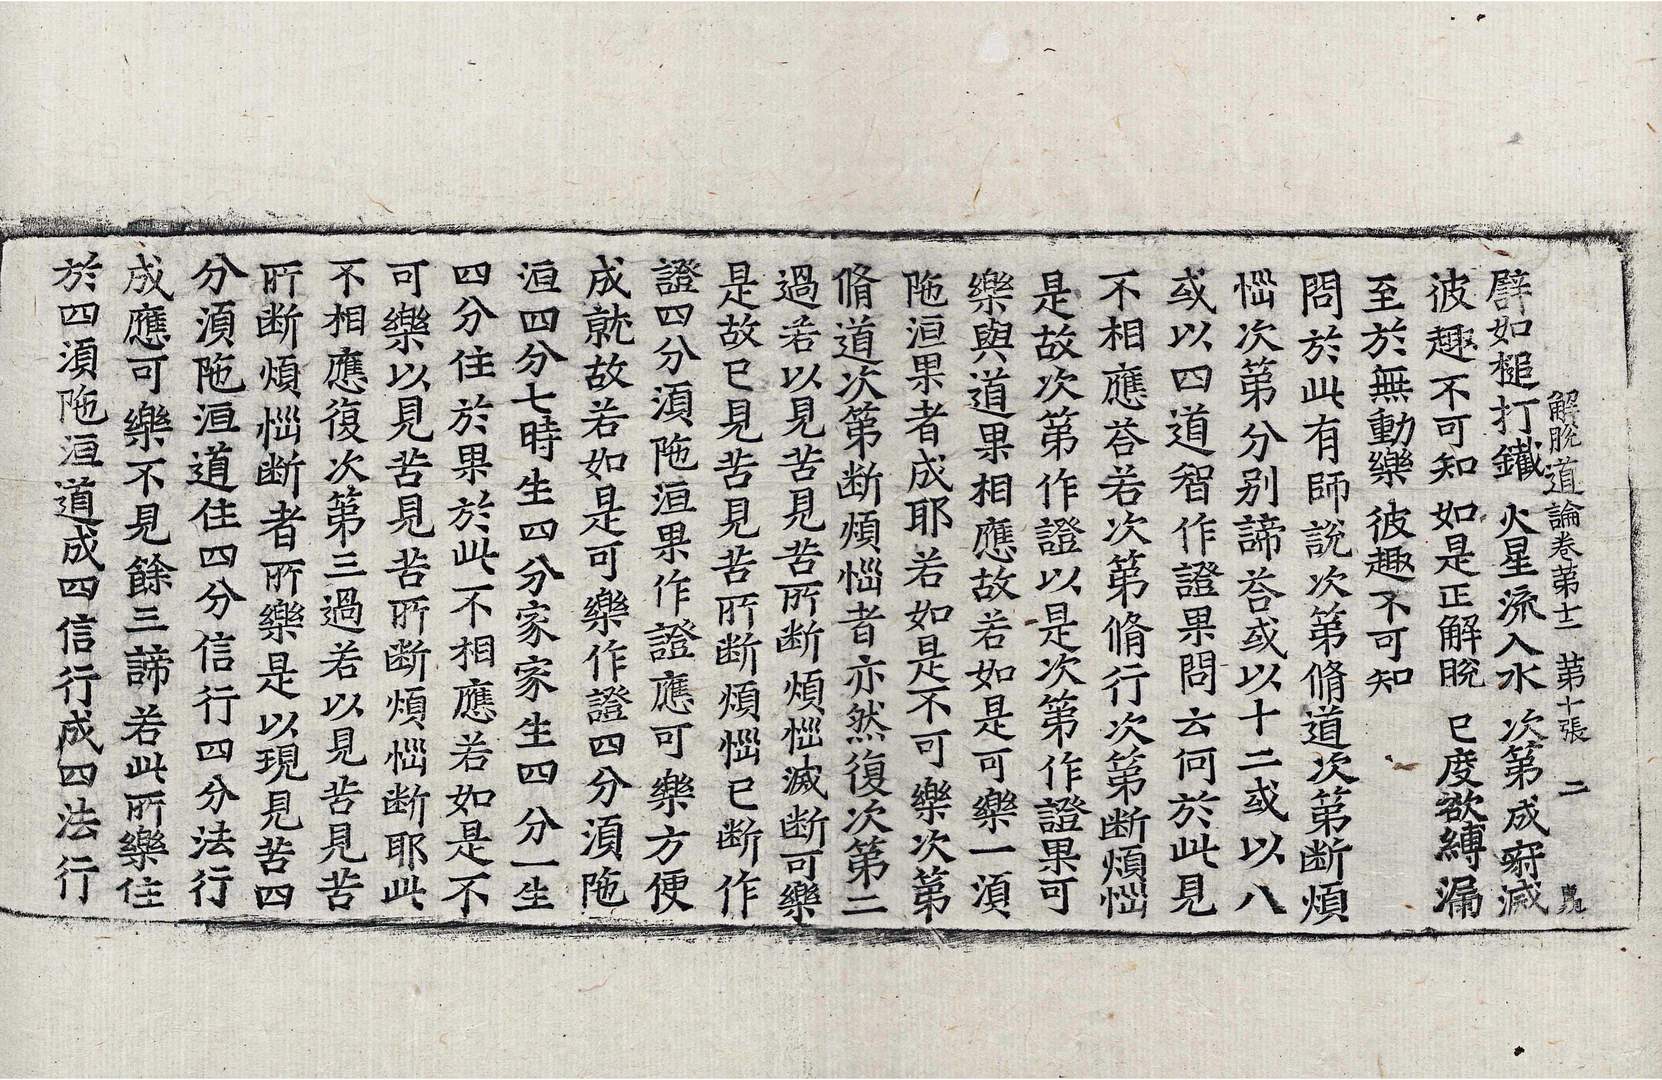 解脫道論卷第十二　第十張　二
譬如槌打鐵　火星流入水　次第成寂滅
彼趣不可知　如是正解脫　已度欲縛漏
至於無動樂　彼趣不可知
問於此有師說次第脩道次第断煩
惱次第分别諦荅或以十二或以八
或以四道智作證果問云何於此見
不相應荅若次第脩行次第断煩惱
是故次第作證以是次第作證果可
樂與道果相應故若如是可樂一湏
陁洹果者成耶若如是不可樂次第
脩道次第断煩惱者亦然復次第二
過若以見苦見苦所断煩惱滅断可樂
是故已見苦見苦所断煩惱已断作
證四分湏陁洹果作證應可樂方便
成就故若如是可樂作證四分湏陁
洹四分七時生四分家家生四分一生
四分住於果於此不相應若如是不
可樂以見苦見苦所断煩惱断耶此
不相應復次第三過若以見苦見苦
所断煩惱断者所樂是以現見苦四
分湏陁洹道住四分信行四分法行
成應可樂不見餘三諦若此所樂住
於四湏陁洹道成四信行成四法行